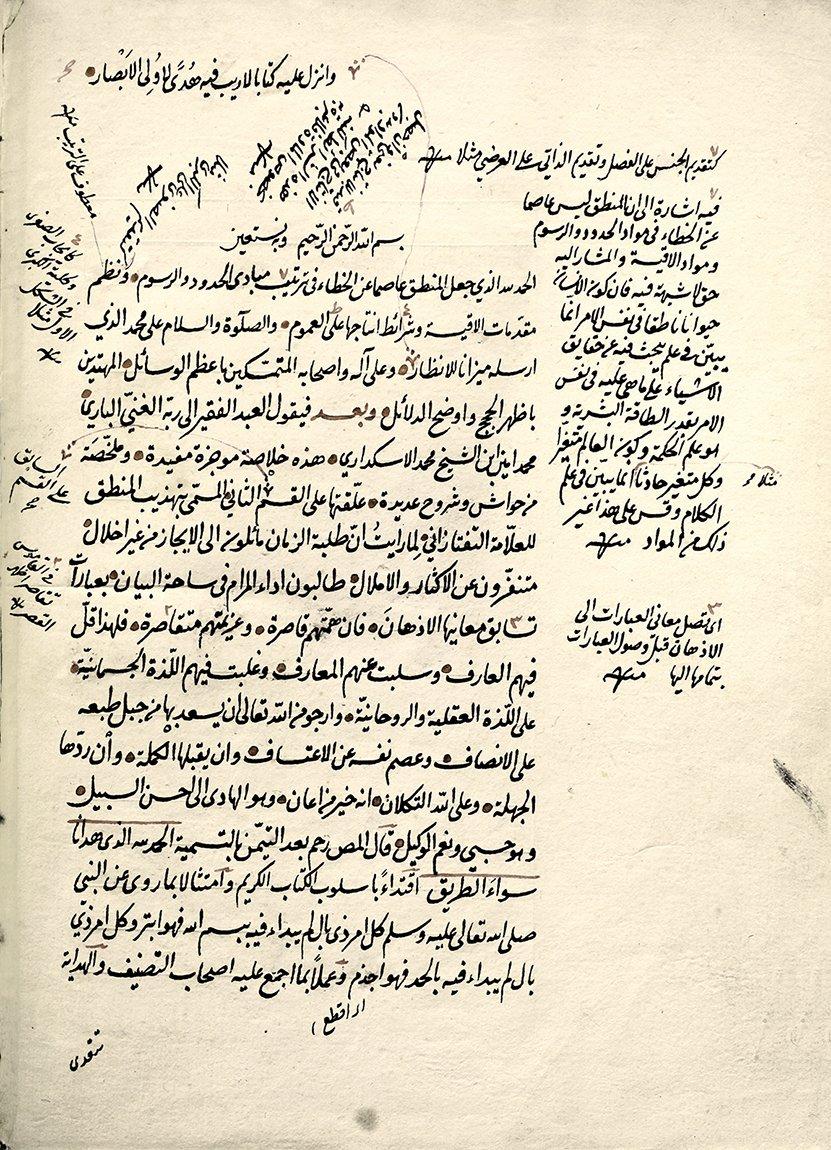 وانزل عليه كتابا لاريب فيه هُدًى لِاُولِى الاَبْصار
كتقديم الجنس على الفصل وتقديم الذاتى على العرضى مثلا منه
معطوف على الترتيب منه
بسم الله الرحمن الرحيم وبه نستعين
الحمد لله الذى جعل المنطق عاصما عن الخطاء فى ترتيب مبادى الحدود والرسوم ونظم
مقدمات الاقيسة وشرائط انتاجها على العموم والصلوة والسلام على محمد الذى
ارسله ميزانا للانظار وعلى آله واصحابه المتمسكين باعظم الوسائل المهتدين
باظهر الحجج واوضح الدلائل وبعد فيقول العبد الفقير الى ربه الغنى البارى
محمد امين ابن الشيخ محمد الاسكدارى هذه خلاصة موجزة مفيدة وملخصة
من حواش وشروح عديدة علقتها على القسم الثانى المسمى بتهذيب المنطق
للعلامة التفتازانى لما رايت ان طلبة الزمان مائلون الى الايجاز من غير اخلال
متنفرون عن الاكثار والاملال طالبون اداء المرام فى ساحة البيان بعبارات
تسابق معانيها الاذهان فان همتهم قاصرة وعزيمتهم متقاصرة فلهذا قلّ
فيهم العارف وسلبت عنهم المعارف وغلبت فيهم اللذة الجسمانية
على اللذة العقلية والروحانية وارجو من الله تعالى ان يسعد بها من جبل طبعه
على الانصاف وعصم نفسه عن الاعتساف وان يقبلها الكملة وأن ردّها
الجهلة وعلى الله التكلان انه خير من اعان وهو الهادى الى احسن السبيل
وهو حسبى ونعم الوكيل قال المص رحم بعد التيمن بالتسمية الحمد لله الذى هدانا
سواء الطريق اقتداءً باسلوب الكتاب الكريم وامتثالا بما روى عن النبى
صلى الله تعالى عليه وسلم كل امر ذى بال لم يبداء فيه ببسم الله فهو ابتر وكل امر ذى
بال لم يبداء فيه بالحمد فهو اجذم وعملاً بما اجمع عليه اصحاب التصنيف والهداية
اى اقطع
فيه اشارة الى ان المنطق ليس عاصما
عن الخطاء فى مواد الحدود والرسوم
ومواد الاقيسة والمشار اليه
حق لاشبهة فيه فان كون الانسان
حيوانا ناطقا فى نفس الامر انما
يبيّن فى علم يبحث فيه عن حقايق
الاشياء على ماهى عليه فى نفس
الامر بقدر الطاقة البشرية و
هو علم الحكمة وكون العالم متغيرا
وكل متغير حادثا انما يبيّن فى علم
الكلام وقس على هذا غير
ذلك من المواد منه
مثلا صح
اى تصل معانى العبارات الى
الاذهان قبل وصول العبارات
بتمامها اليها منه
كايجاب الصغرى
وكلية الكبرى
فى الشكل
الاول مثلا
منه
السابق
على القسم
صح